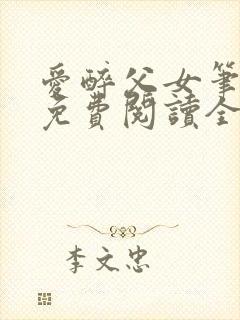 愛醉父女筆
免費閱讀全
李文忠